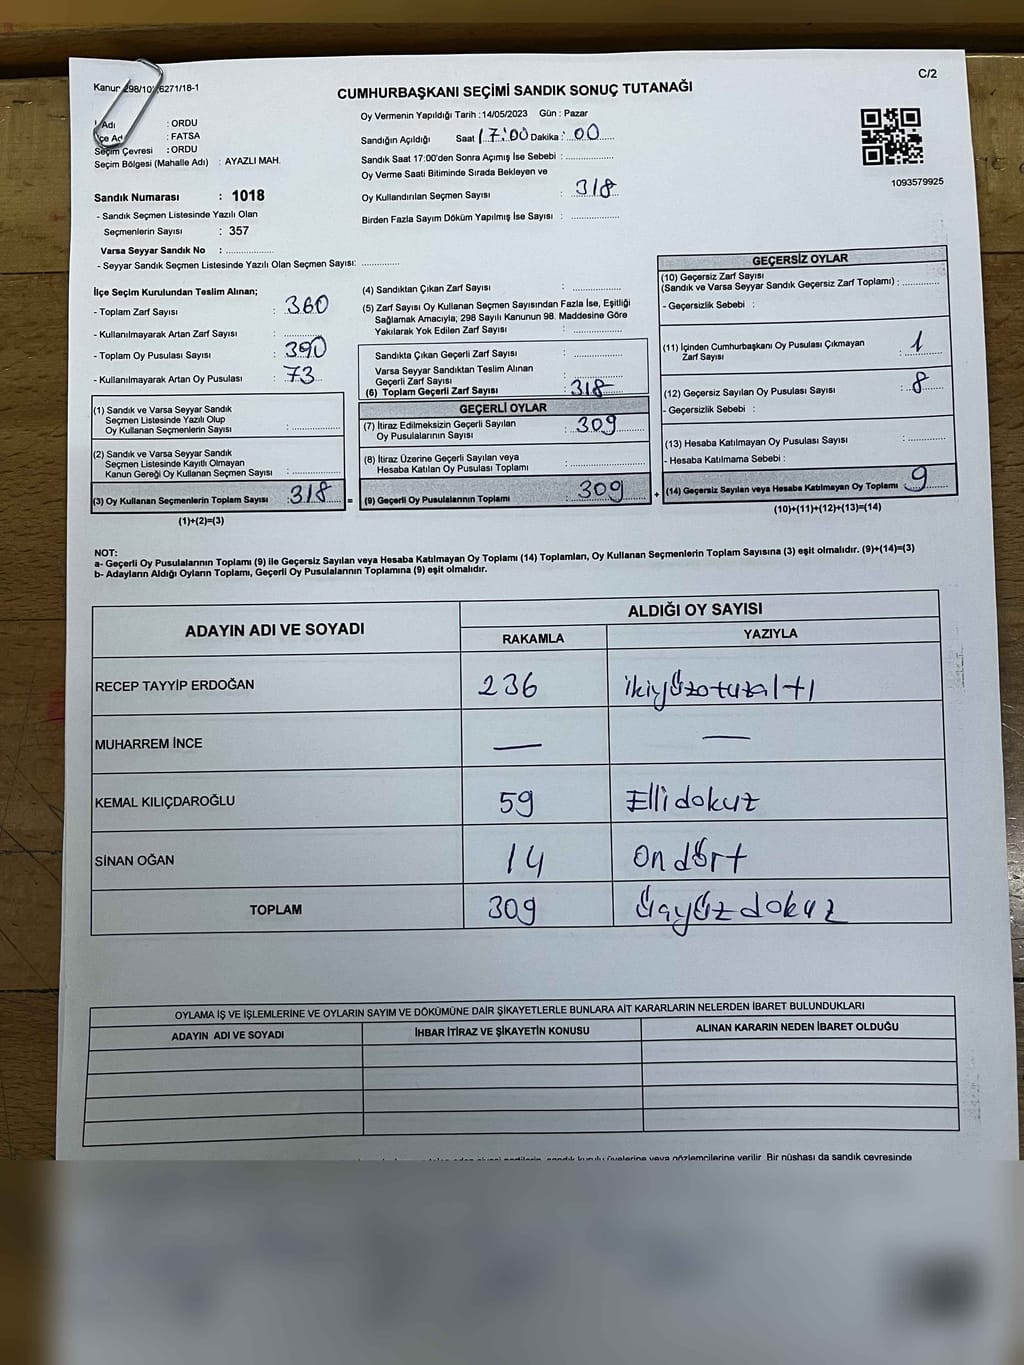 C/2
Kanun 298/10 6271/18-1
CUMHURBAŞKANI SEÇİMİ SANDIK SONUÇ TUTANAĞI
Adı : ORDU
İlçe Adı : FATSA
Seçim Çevresi : ORDU
Seçim Bölgesi (Mahalle Adı) : AYAZLI MAH.
Sandık Numarası : 1018
- Sandık Seçmen Listesinde Yazılı Olan
Seçmenlerin Sayısı : 357
Varsa Seyyar Sandık No : ..............
- Seyyar Sandık Seçmen Listesinde Yazılı Olan Seçmen Sayısı: ............
Oy Vermenin Yapıldığı Tarih :14/05/2023 Gün : Pazar
Sandığın Açıldığı Saat 17:00 Dakika : 00
Sandık Saat 17:00'den Sonra Açımış İse Sebebi : ................
Oy Verme Saati Bitiminde Sırada Bekleyen ve
Oy Kullandırılan Seçmen Sayısı : 318
Birden Fazla Sayım Döküm Yapılmış İse Sayısı : ................
1093579925
İlçe Seçim Kurulundan Teslim Alınan;
- Toplam Zarf Sayısı : 360
- Kullanılmayarak Artan Zarf Sayısı : ............
- Toplam Oy Pusulası Sayısı : 390
- Kullanılmayarak Artan Oy Pusulası : 73
(1) Sandık ve Varsa Seyyar Sandık
Seçmen Listesinde Yazılı Olup
Oy Kullanan Seçmenlerin Sayısı : ................
(2) Sandık ve Varsa Seyyar Sandık
Seçmen Listesinde Kayıtlı Olmayan
Kanun Gereği Oy Kullanan Seçmen Sayısı : ................
(3) Oy Kullanan Seçmenlerin Toplam Sayısı 318 =
(1)+(2)=(3)
(4) Sandıktan Çıkan Zarf Sayısı : ................
(5) Zarf Sayısı Oy Kullanan Seçmen Sayısından Fazla İse, Eşitliği
Sağlamak Amacıyla; 298 Sayılı Kanunun 98. Maddesine Göre
Yakılarak Yok Edilen Zarf Sayısı : ................
Sandıkta Çıkan Geçerli Zarf Sayısı : ................
Varsa Seyyar Sandıktan Teslim Alınan
Geçerli Zarf Sayısı : ................
(6) Toplam Geçerli Zarf Sayısı : 318
GEÇERLİ OYLAR
(7) İtiraz Edilmeksizin Geçerli Sayılan
Oy Pusulalarının Sayısı : 309
(8) İtiraz Üzerine Geçerli Sayılan veya
Hesaba Katılan Oy Pusulası Toplamı : ................
(9) Geçerli Oy Pusulalarının Toplamı : 309 +
GEÇERSİZ OYLAR
(10) Geçersiz Zarf Sayısı
(Sandık ve Varsa Seyyar Sandık Geçersiz Zarf Toplamı) : ............
- Geçersizlik Sebebi :
(11) İçinden Cumhurbaşkanı Oy Pusulası Çıkmayan
Zarf Sayısı : 1
(12) Geçersiz Sayılan Oy Pusulası Sayısı : 8
- Geçersizlik Sebebi :
(13) Hesaba Katılmayan Oy Pusulası Sayısı : ............
- Hesaba Katılmama Sebebi :
(14) Geçersiz Sayılan veya Hesaba Katılmayan Oy Toplamı 9
(10)+(11)+(12)+(13)=(14)
NOT:
a- Geçerli Oy Pusulalarının Toplamı (9) ile Geçersiz Sayılan veya Hesaba Katılmayan Oy Toplamı (14) Toplamları, Oy Kullanan Seçmenlerin Toplam Sayısına (3) eşit olmalıdır. (9)+(14)=(3)
b- Adayların Aldığı Oyların Toplamı, Geçerli Oy Pusulalarının Toplamına (9) eşit olmalıdır.
ADAYIN ADI VE SOYADI ALDIĞI OY SAYISI
RAKAMLA YAZIYLA
RECEP TAYYİP ERDOĞAN 236 ikiyüzotuzaltı
MUHARREM İNCE — —
KEMAL KILIÇDAROĞLU 59 Elli dokuz
SİNAN OĞAN 14 On dört
TOPLAM 309 Üçyüz dokuz
OYLAMA İŞ VE İŞLEMLERİNE VE OYLARIN SAYIM VE DÖKÜMÜNE DAİR ŞİKAYETLERLE BUNLARA AİT KARARLARIN NELERDEN İBARET BULUNDUKLARI
ADAYIN ADI VE SOYADI İHBAR İTİRAZ VE ŞİKAYETİN KONUSU ALINAN KARARIN NEDEN İBARET OLDUĞU
sandık kurulu üyelerine veya gözlemcilerine verilir. Bir nüshası da sandık çevresinde